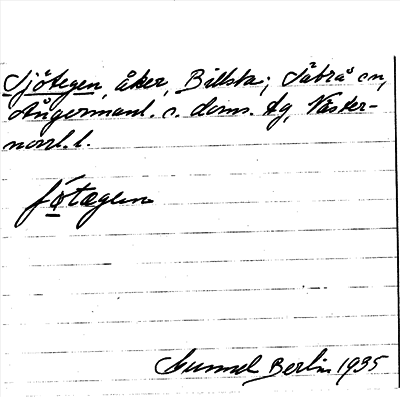 Sjötegen, åker, Billsta; Säbrå sn,
Ångermanl. s. doms. tg, Väster-
norrl. l.
ʃö̀tægen
Gunnel Berlin 1935